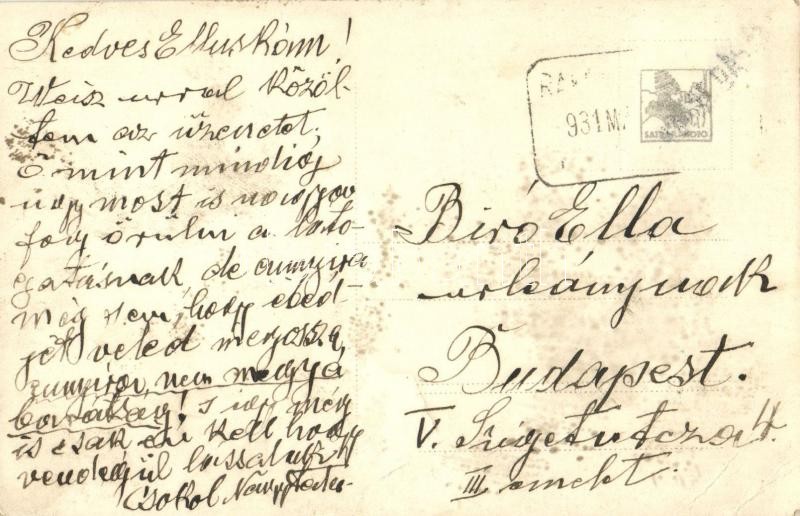 Kedves Elluskám!
Weisz urral közöl-
tem az üzenetet.
Ő mint mindég
úgy most is nagyon
fog örülni a láto-
gatásnak, de annyira
még sem, hogy ebéd-
jét veled megossza,
annyira nem megy a
barátság! s így még
is csak én kell hogy
vendégül lássalak
Csókol
931 MÁ
Bíró Ella
urleánynak
Budapest.
V. Sziget utcza 4.
III emelet.